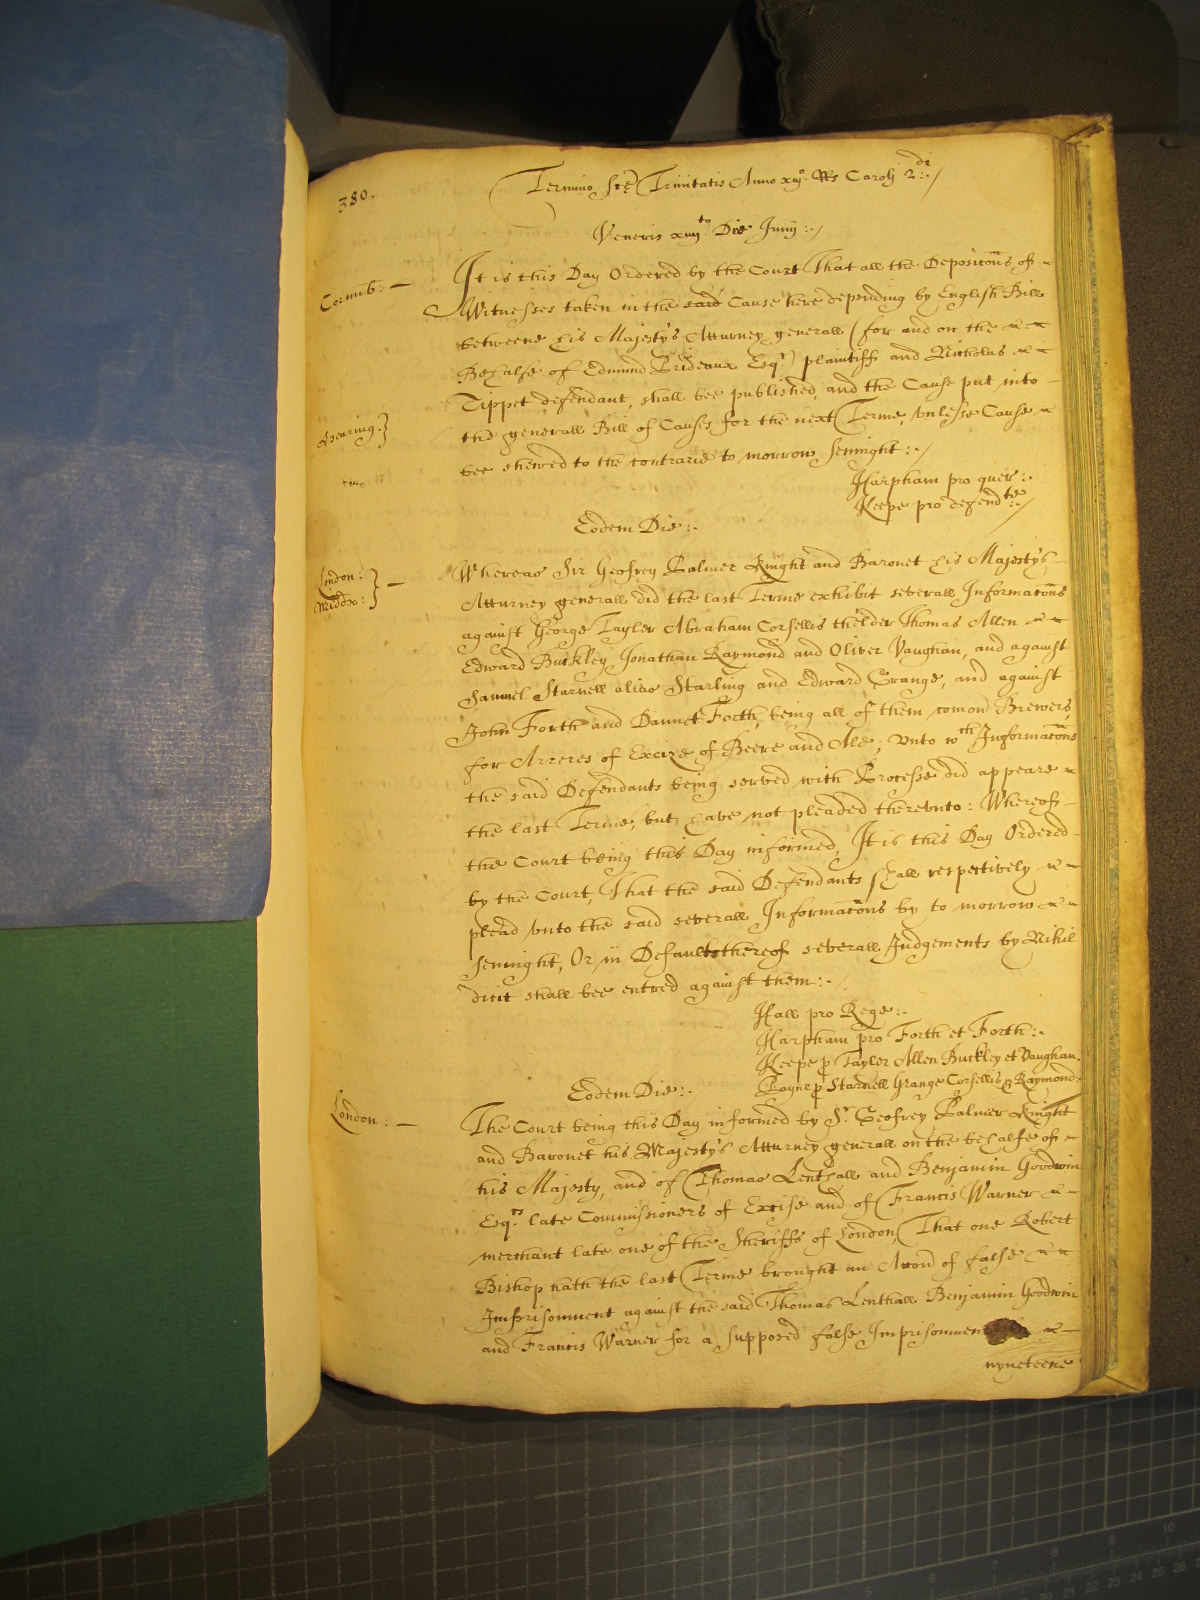 380.
Termino Scē Trinitatis Anno xiij.º Rs Carolj 2.di
Veneris xiiij.to Die Junij:
Cornub:
It is this Day Ordered by the Court That all the Depositōns of
Witnesses taken in the said Cause here depending by English Bill
betweene his Majesty's Atturney generall (for and on the
Behalfe of Edmund Prideaux Esq.r) plaintiff and Nicholas
Tippet defendant, shall bee published, and the Cause put into
hearing.}
the generall Bill of Causes for the next Terme, vnlesse Cause
bee shewed to the contrarie to morrow sennight:
Harpham pro quer:
Keepe pro defend.te:
Eodem Die:
London:
Middx:}
Whereas Sir Geofrey Palmer Knight and Baronet his Majesty's
Atturney generall did the last Terme exhibit severall Informatōns
against George Tayler Abraham Corsellis th'elder Thomas Allen
Edward Buckley, Jonathan Raymond and Oliver Vaughan, and against
Samuel Starnell alias Starling and Edward Grange, and against
John Forth and Dannet Forth, being all of them comon Brewers,
for Arreres of Excize of Beere and Ale, Vnto w.ch Informatōns
the said Defendants being served with Processe did appeare
the last Terme, but have not pleaded therevnto: Whereof
the Court being this Day informed, It is this Day Ordered
by the Court, That the said Defendants shall respectively
plead vnto the said severall Informatōns by to morrow
sennight, Or in Defaulte thereof severall Judgements by Nihil
dicit shall bee entred against them:
Hall pro Rege:
Harpham pro Forth et Forth:
Keepe p Tayler Allen Buckley et Vaughan.
Payne p Starnell Grange Corsellis & Raymond:
Eodem Die:
London:
The Court being this Day informed by S.r Geofrey Palmer Knight
and Baronet his Majesty's Atturney generall on the behalfe of
his Majesty, and of Thomas Lenthall and Benjamin Goodwin
Esq.rs late Commissioners of Excise and of Francis Warner
merchant late one of the Sheriffs of London, That one Robert
Bishop hath the last Terme brought an Accon̄ of false
Imprisonment against the said Thomas Lenthall Benjamin Goodwin
and Francis Warner for a supposed false Imprisonmen
nyneteene